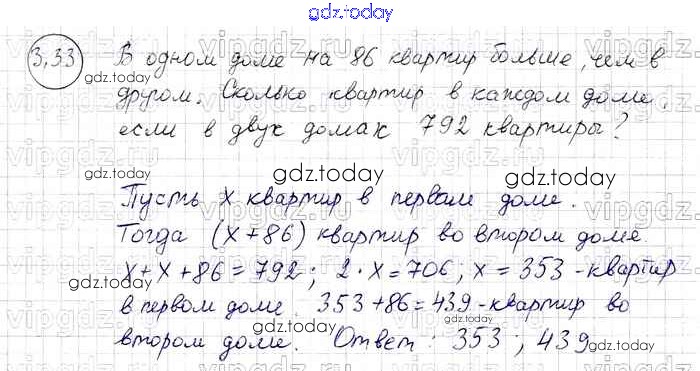 gdz.today
3.33 В одном доме на 86 квартир больше, чем в
gdz.today
другом. Сколько квартир в каждом доме,
если в двух домах 792 квартиры?
gdz.today
Пусть x квартир в первом доме.
Тогда (x+86) квартир во втором доме.
x+x+86=792; 2·x=706; x=353-квартир
в первом доме. 353+86=439-квартир во
втором доме. Ответ: 353; 439
gdz.today